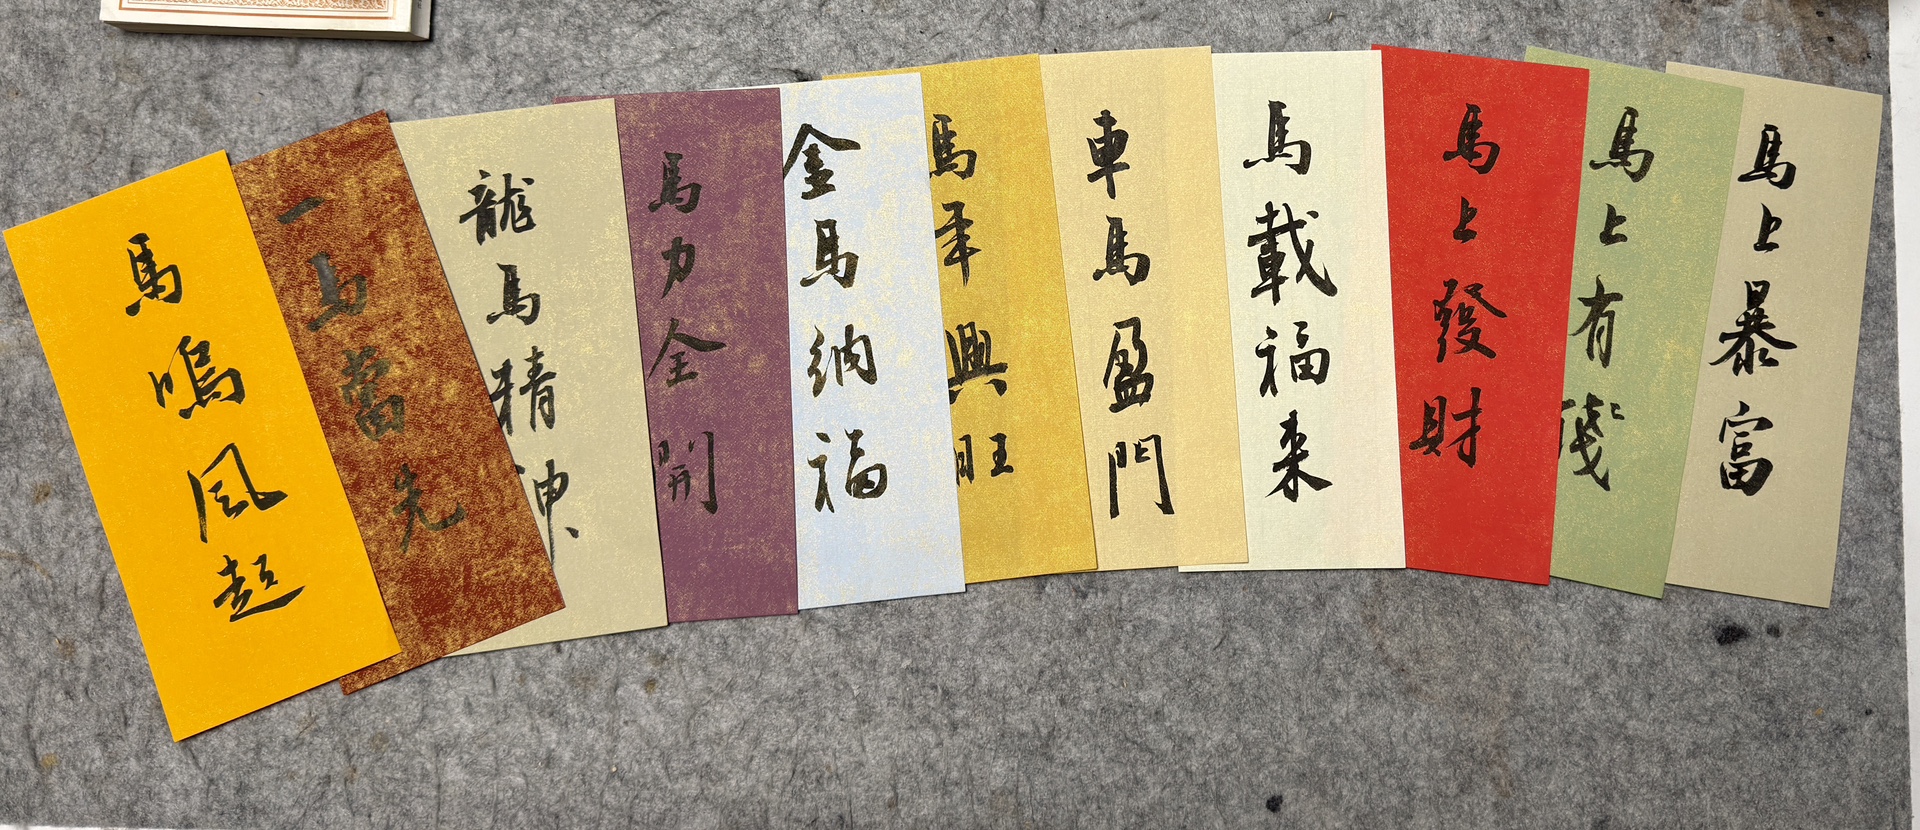 馬上暴富
馬上有錢
馬上發財
馬載福來
車馬盈門
馬年興旺
金馬納福
馬力全開
龍馬精神
一馬當先
馬鳴風起